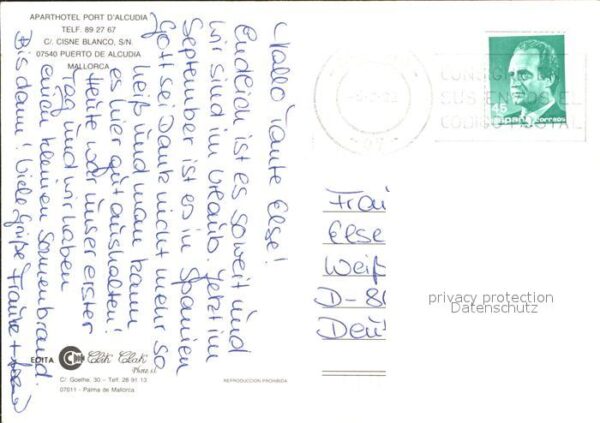 APARTHOTEL PORT D'ALCUDIA
TELF. 89 27 67
C/. CISNE BLANCO, S/N.
07540 PUERTO DE ALCUDIA
MALLORCA
Hallo Tante Else!
Endlich ist es soweit und
wir sind im Urlaub. Jetzt im
September ist es in Spanien
Gott sei Dank nicht mehr so
heiß und man kann
es hier gut aushalten!
Heute war unser erster
Tag und wir haben
einen kleinen Sonnenbrand.
Bis dann! Viele Grüße
EDITA Click Clak
Photo, s.l.
C/. Goethe, 30 - Telf. 28 91 13
07011 - Palma de Mallorca
REPRODUCCION PROHIBIDA
CONSIGNE
SUS ENVIOS EL
CODIGO POSTAL
07
45
españa correos
Frau
Else
Weiß
D-8
Deu
privacy protection
Datenschutz